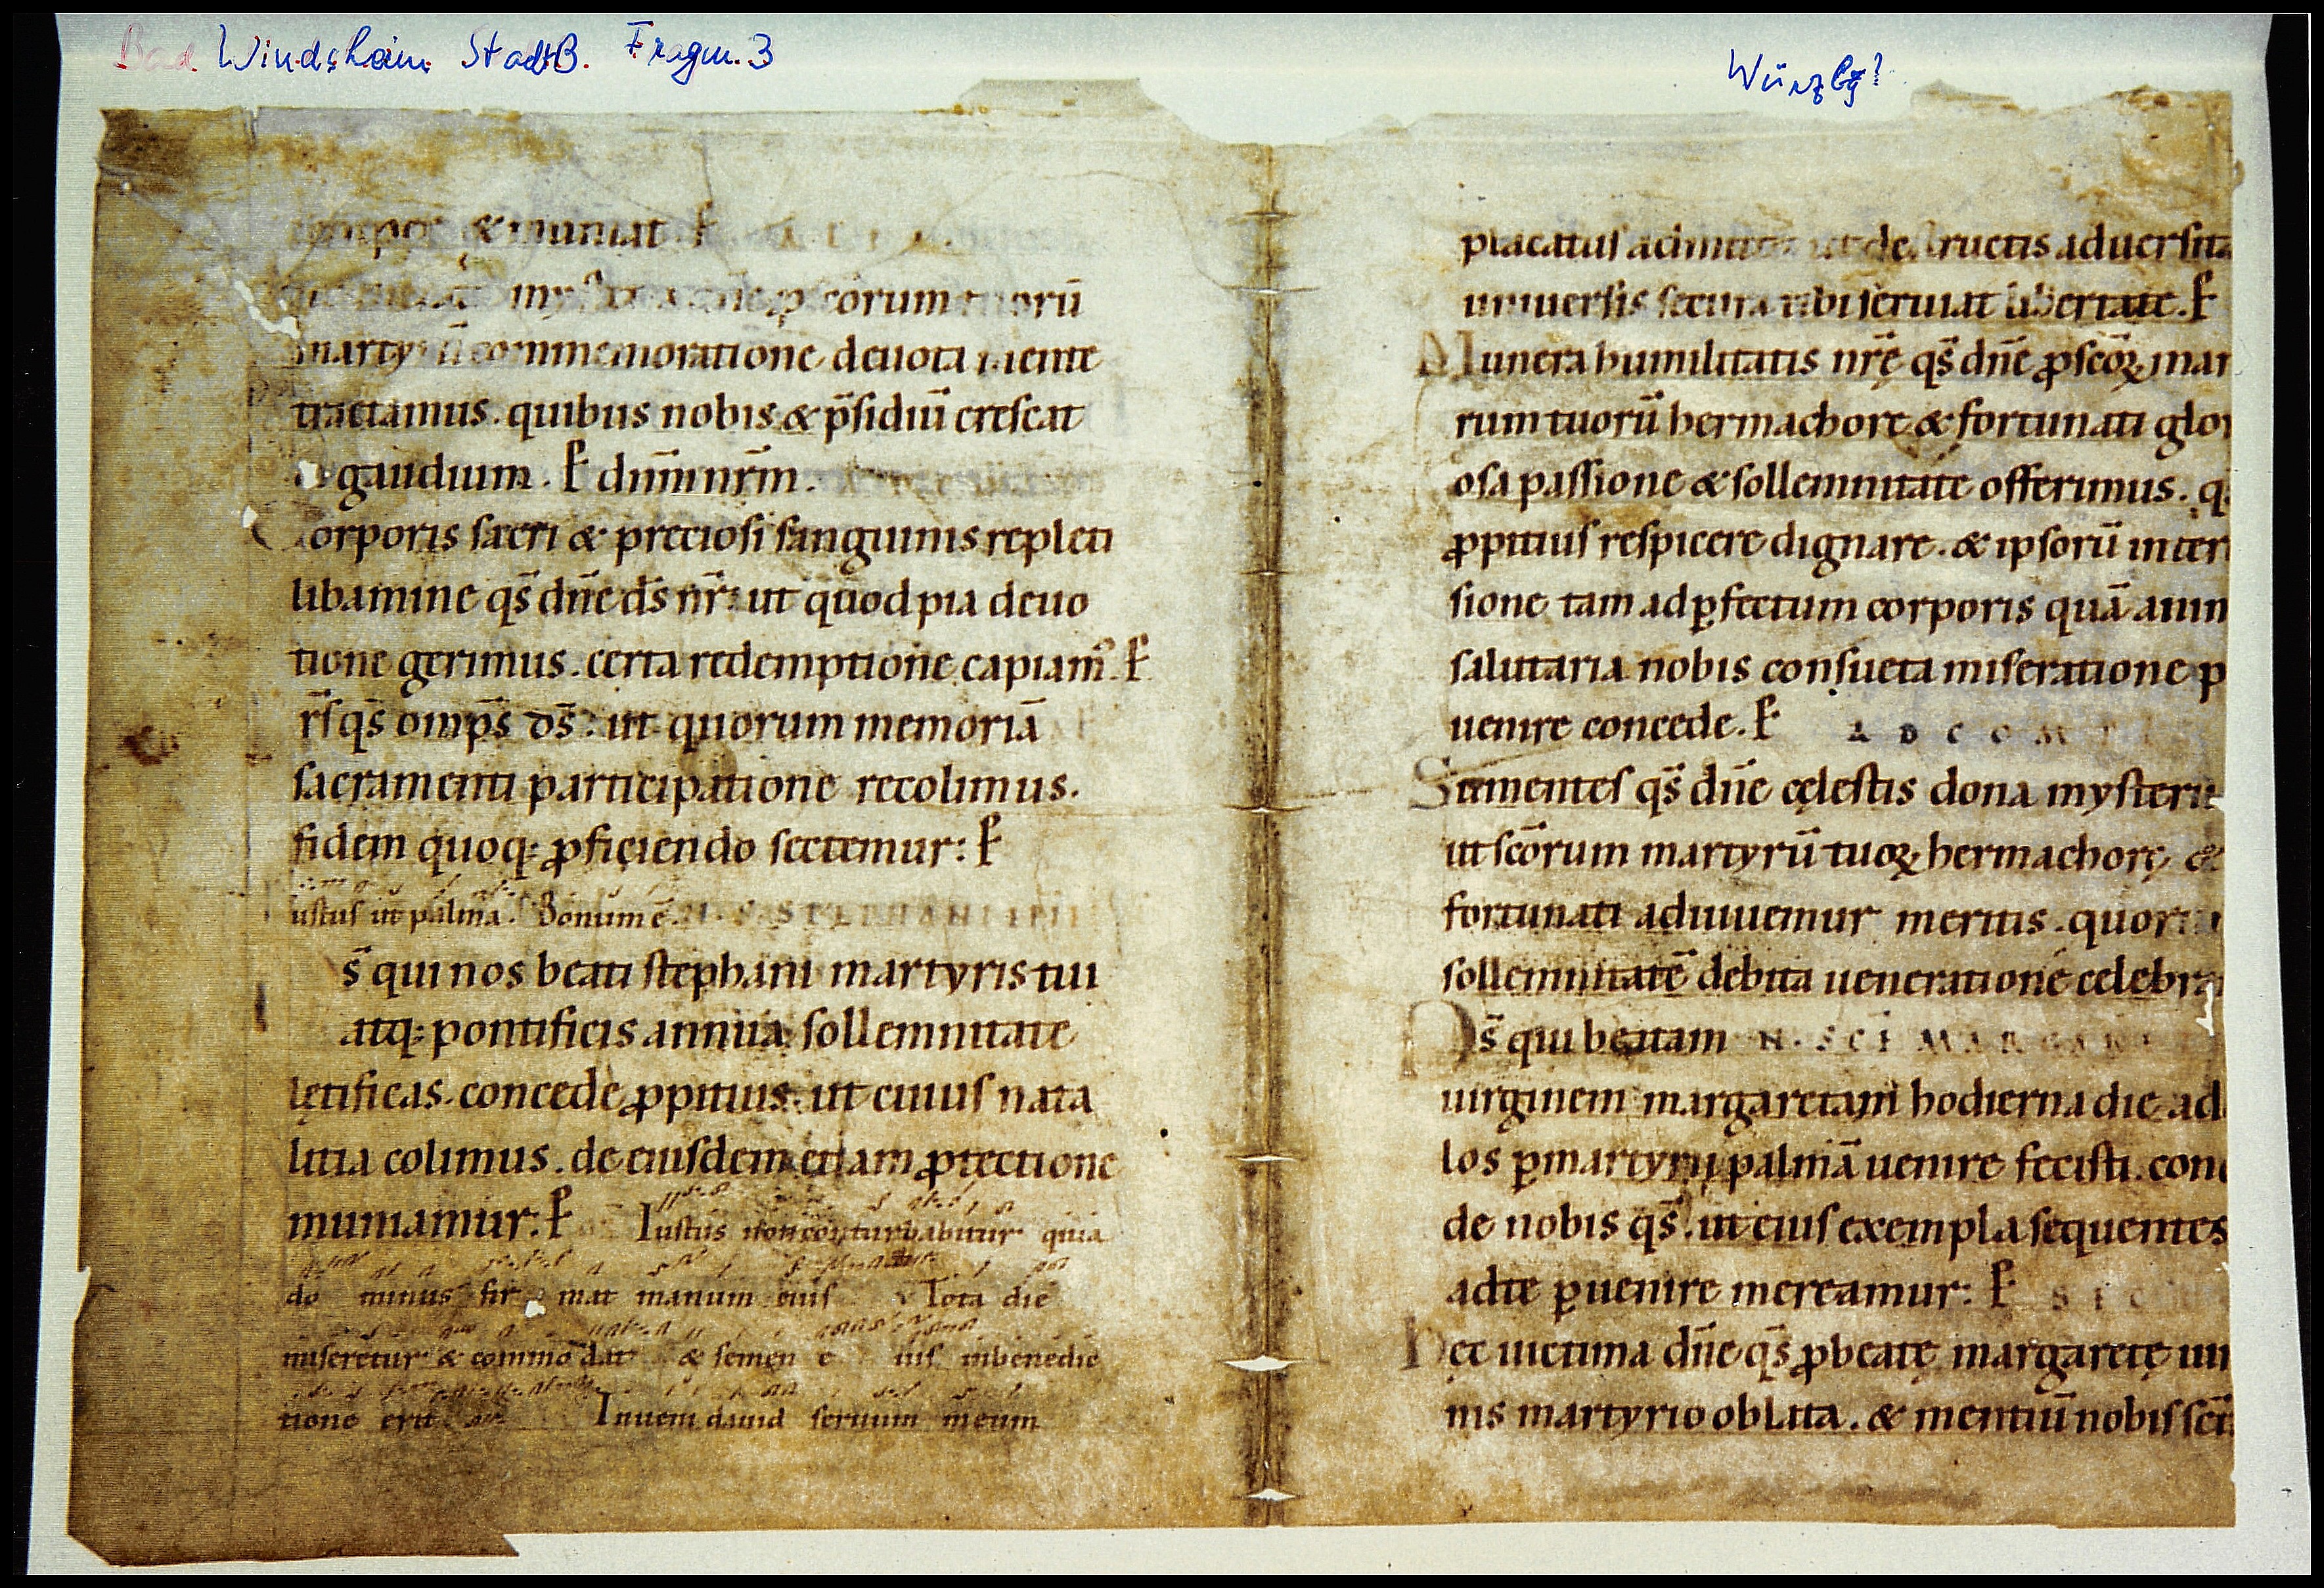 Bad Windsheim StadtB. Fragm. 3
Würzbg?
semper & muniat. P
myst dn̄e p scorum tuorū
martyrū commemoratione deuota mente
tractamus. quibus nobis & p̄sidiū crescat
& gaudium. P dn̄m nr̄m.
Corporis sacri & preciosi sanguinis repleti
libamine qs̄ dn̄e ds̄ nr̄: ut quod pia deuo
tione gerimus. certa redemptione capiam᷒. P
r̄s qs̄ omps̄ ds̄: ut quorum memoriā
sacramenti participatione recolimus.
fidem quoq; ꝓficiendo sectemur: P
iustus ut palma. Bonum ē. N. S. STEPHANI
s̄ qui nos beati stephani martyris tui
atq; pontificis annua sollemnitate
lętificas. concede ꝓpitius. ut cuius nata
litia colimus. de eiusdem etiam ꝓtectione
muniamur. P Iustus non conturbabitur quia
do minus fir mat manum eius Tota die
miseretur & commodat & semen e ius inbenedic
tione erit Inueni dauid seruum meum
placatus de structis aduersita
uniuersis secura tibi seruiat libertate. P
Munera humilitatis nr̄ę qs̄ dn̄e ꝓ scōꝝ mar
rum tuorū hermachorę & fortunati glori
osa passione & sollemnitate offerimus. q;
ꝓpitius respicere dignare. & ipsorū inter
sione tam ad ꝑfectum corporis quā anim
salutaria nobis consueta miseratione p
uenire concede. P AD COMPL
Sumentes qs̄ dn̄e cęlestis dona mysterii
ut scōrum martyrū tuoꝝ hermachorę &
fortunati adiuuemur meritis. quoru
sollemnitatē debita ueneratione celebra
Ds̄ qui beatam N. SCĪ MARGARE
uirginem margaretam hodierna die ad
los ꝑ martyrii palmā uenire fecisti. conc
de nobis qs̄. ut eius exempla sequentes
ad te ꝑuenire mereamur: P SEC
Hęc uictima dn̄e qs̄ ꝓ beatę margaretę uir
nis martyrio oblata. & mentiū nobis scī